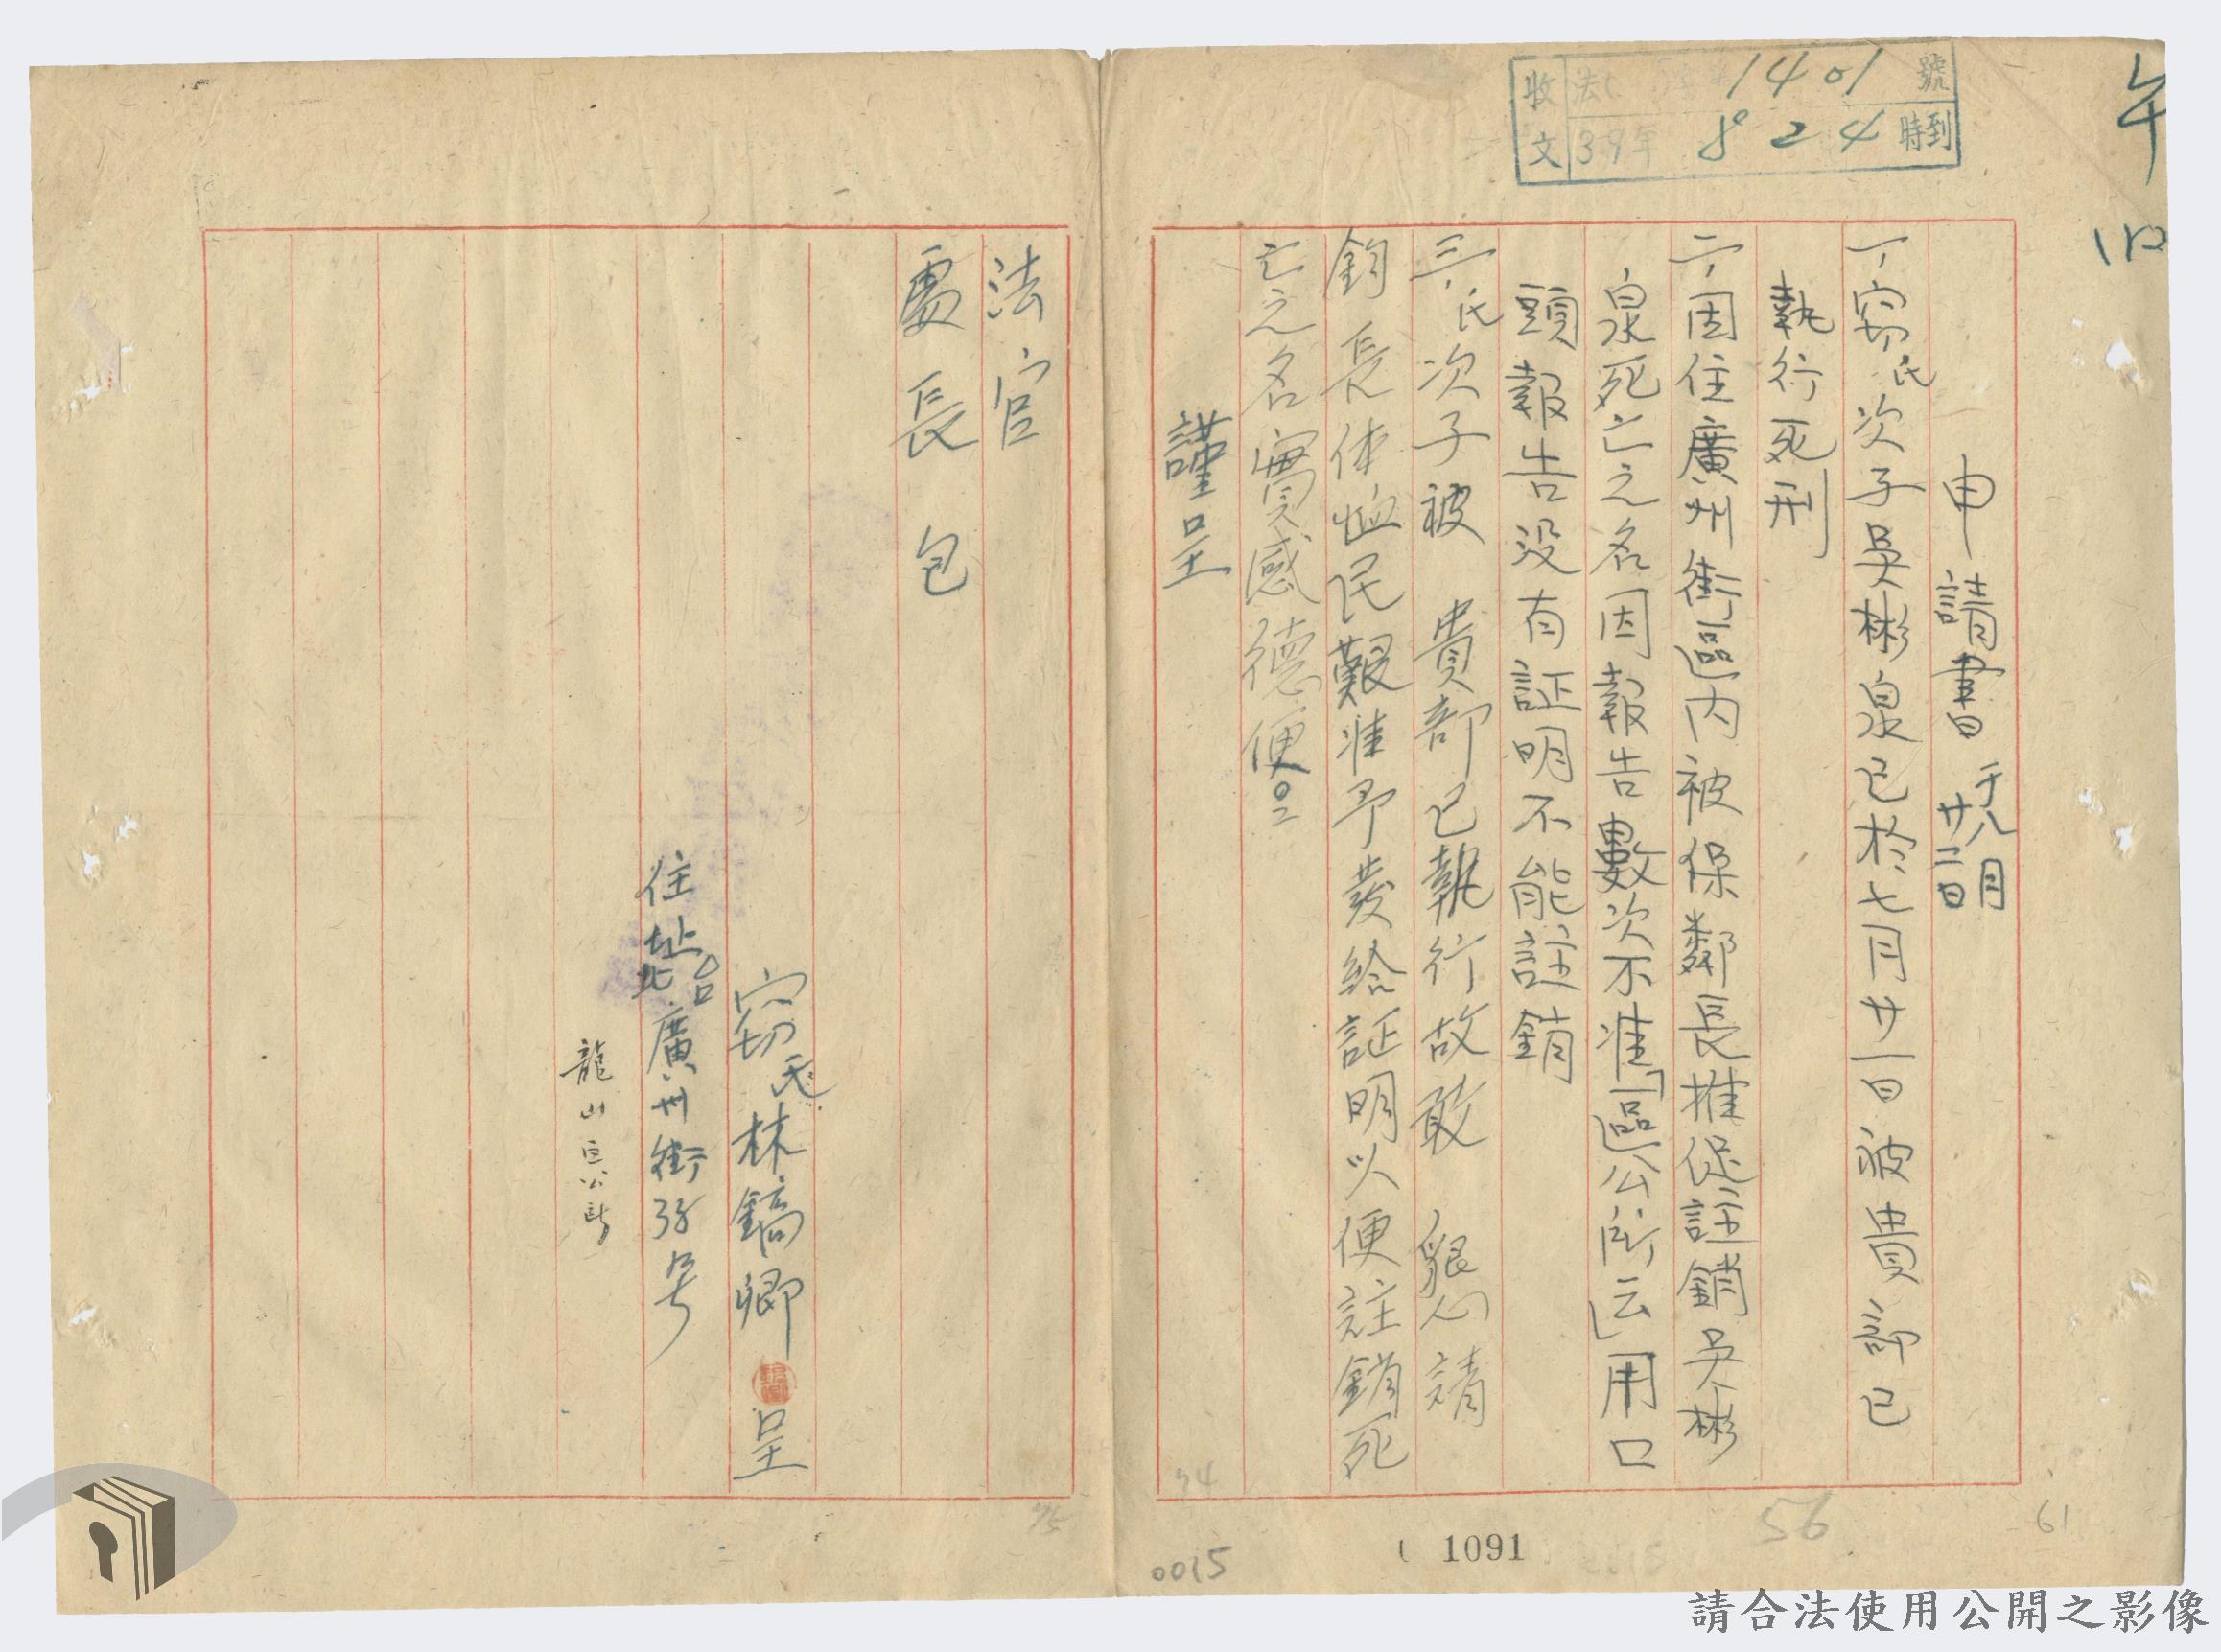 收文 法 1401 號
39年 8 24 時到
午
申請書 于八月廿二日
一、窃氏次子吳彬泉已於七月廿一日被貴部已
執行死刑
二、因住廣州街區内被保鄰長推促註銷吳彬
泉死亡之名因報告數次不准「區公所云」用口
頭報告没有証明不能註銷
三、氏次子被 貴部已執行故敢 懇請
鈞長体恤民艱准予发給証明以便註銷死
亡之名實感德便
謹呈
法官
處長 包
窃氏林鎬卿 呈
住址台北廣州街33号
龍山區公所
74
75
56
61
0015
1091
請合法使用公開之影像